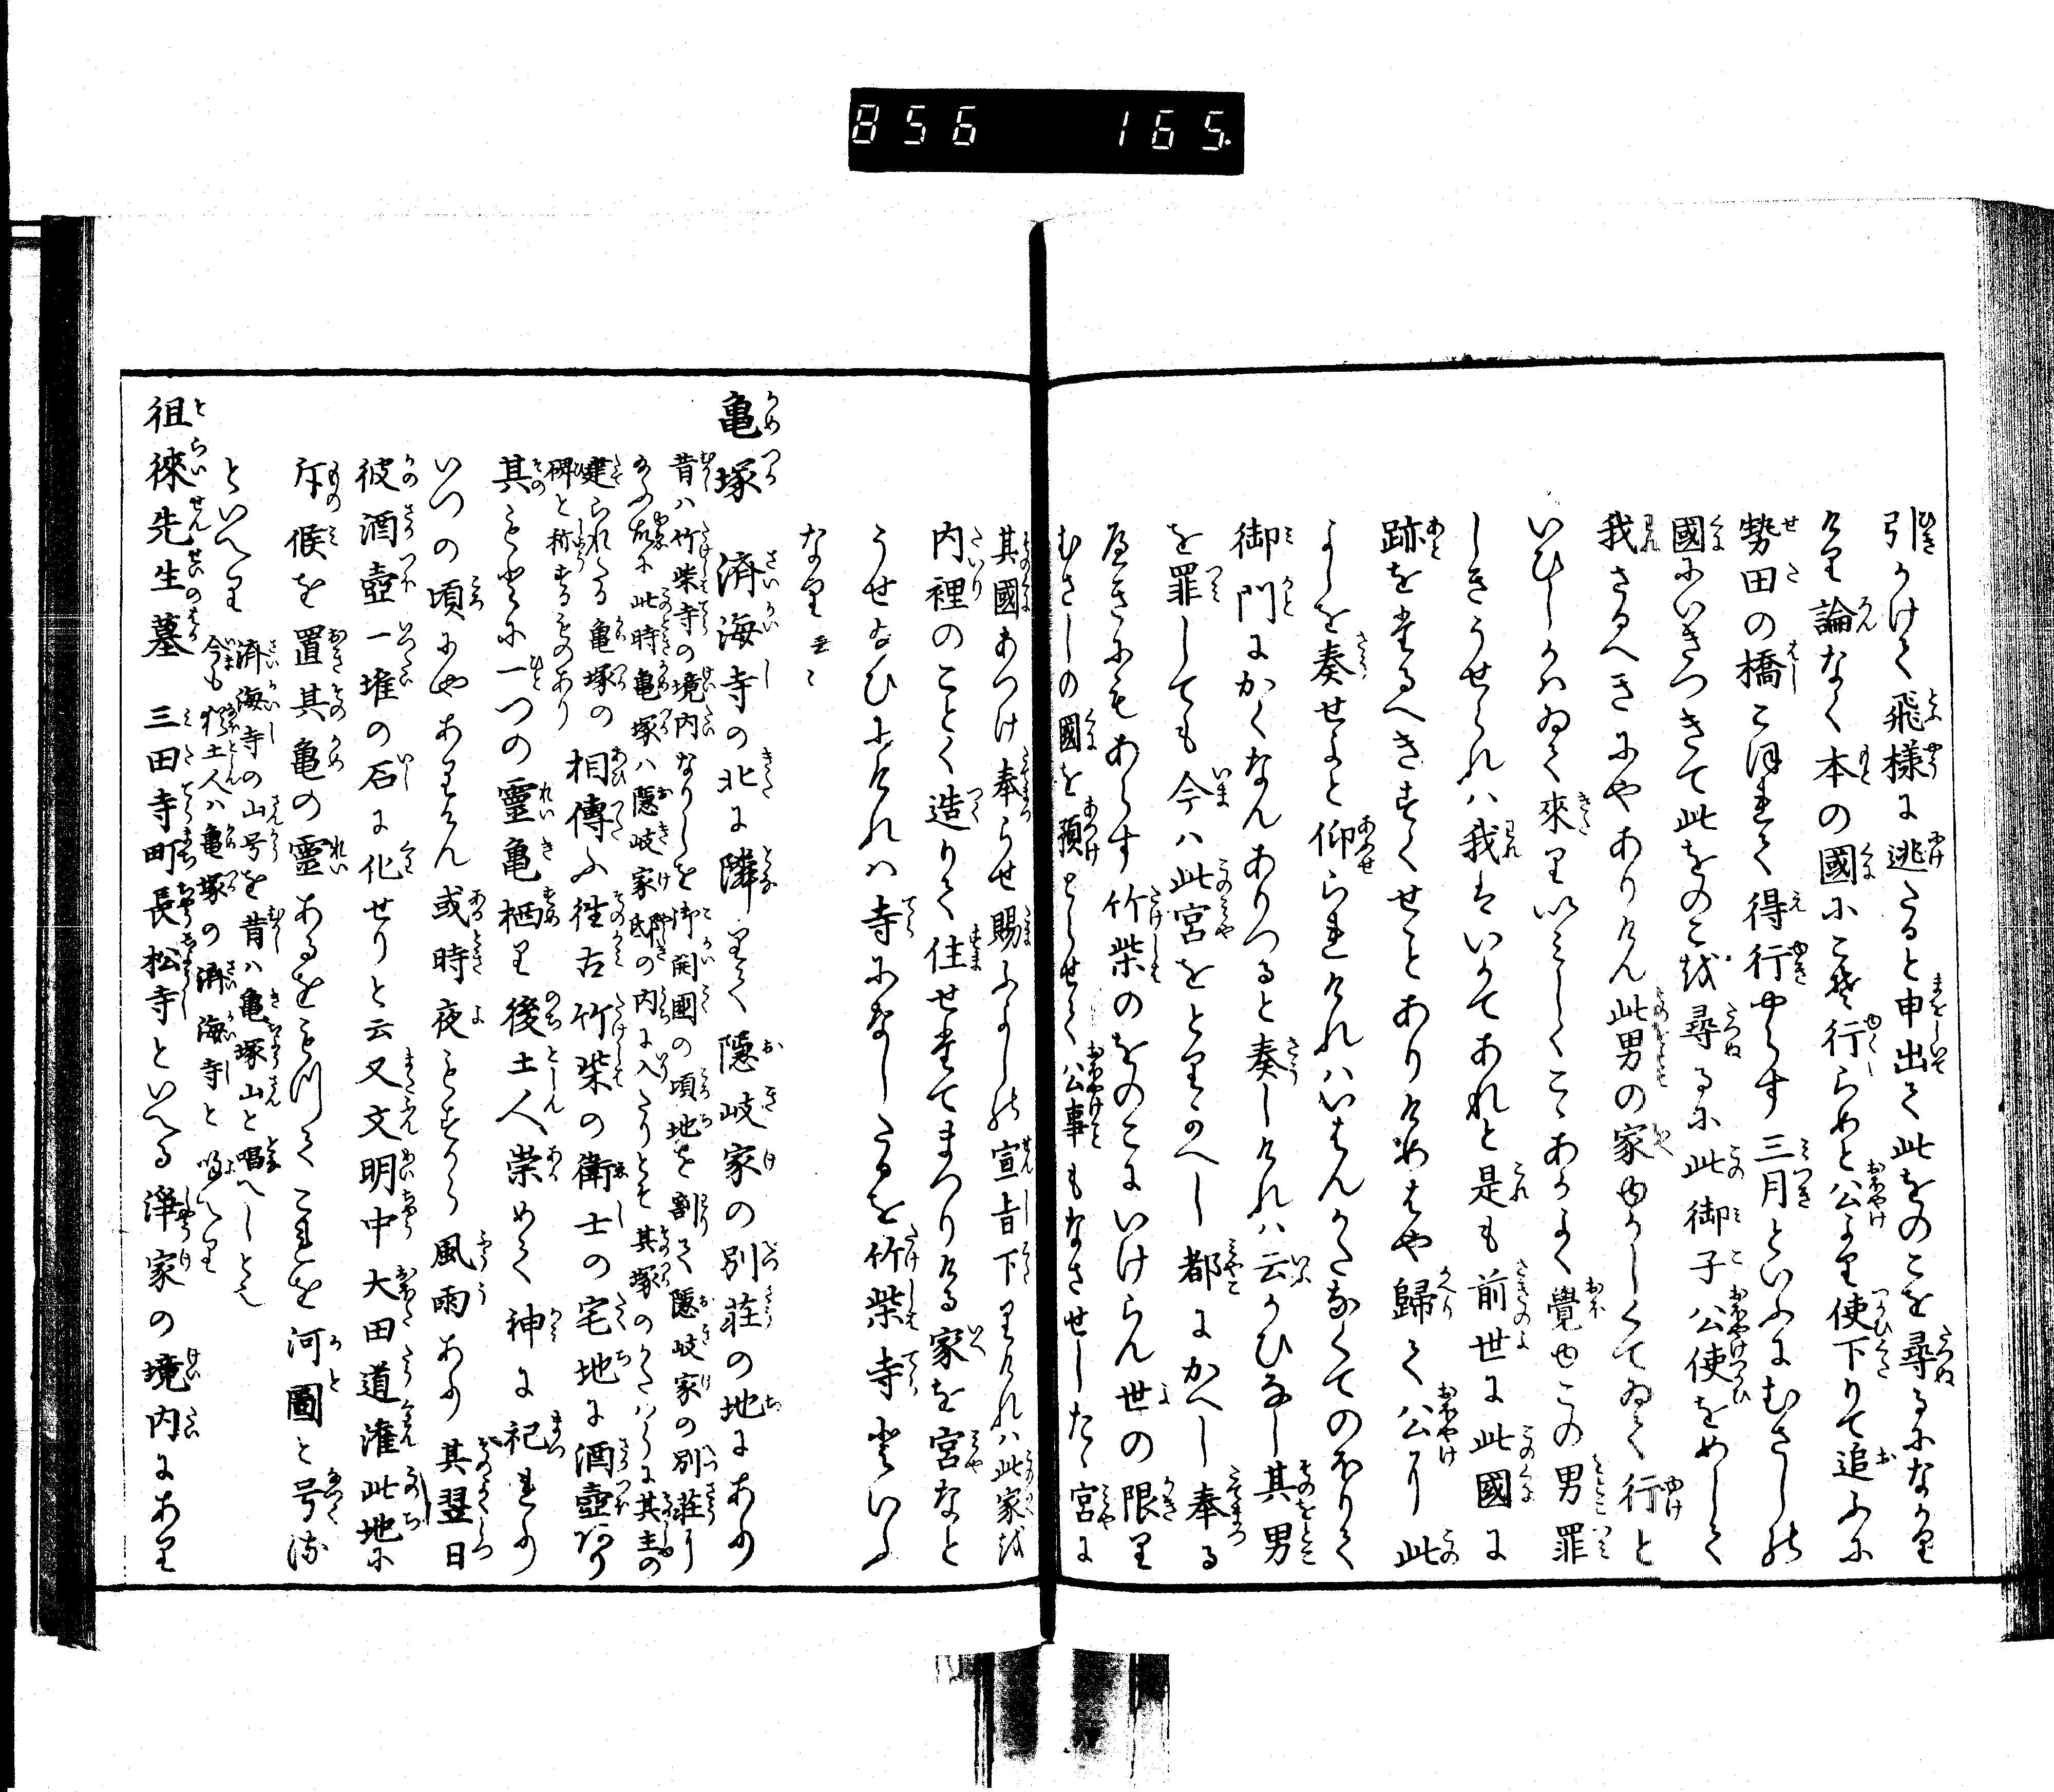 856 165.
引かけて飛様に逃たると申出て此をのこを尋るになかり
けり論なく本の國にこそ行らめと公より使下りて追ふに
勢田の橋こほれて得行やらす三月といふにむさしの
國にいきつきて此をのこを尋るに此御子公使をめして
我さるへきにやありけん此男の家ゆかしくてゐて行と
いひしかはゐて來りいみしくこゝありよく覺ゆこの男罪
しきうせられは我はいかてあれと是も前世に此國に
跡をたるへきすくせこそありけめはや歸て公に此
よしを奏せよと仰られけれはいはんかたなくてのほりて
御門にかくなんありつると奏しけれは云かひなし其男
を罪しても今は此宮をとりかへし都にかへし奉る
へきにもあらす竹柴のをのこにいけらん世の限り
むさしの國を預とらせて公事もなさせしたゝ宮に
其國あつけ奉らせ賜ふよしの宣旨下りけれは此家を
内裡のことく造りて住せたてまつりける家を宮なと
うせたまひにけれは寺になしたるを竹柴寺といふ
なり云々
亀塚　済海寺の北に隣りて隠岐家の別荘の地にあり
昔ハ竹柴寺の境内なりしを御開國の頃地を割て隠岐家の別荘に
なる故に此時亀塚ハ隠岐家邸の内に入たりとそ其塚のかたハらに其主の
建られたる亀塚の
碑と称するものあり
相傳ふ往古竹柴の衛士の宅地に酒壺あり
其もとに一つの靈亀栖り後土人崇めて神に祀れり
いつの頃にやありけん或時夜もすから風雨あり其翌日
彼酒壺一堆の石に化せりと云又文明中大田道潅此地に
斥候を置其亀の靈あるをもつてこれを河圖と号く
といへり
済海寺の山号を昔ハ亀塚山と唱へしとそ
今も猶土人ハ亀塚の済海寺と唱へり
徂徠先生墓　三田寺町長松寺といへる浄家の境内にあり